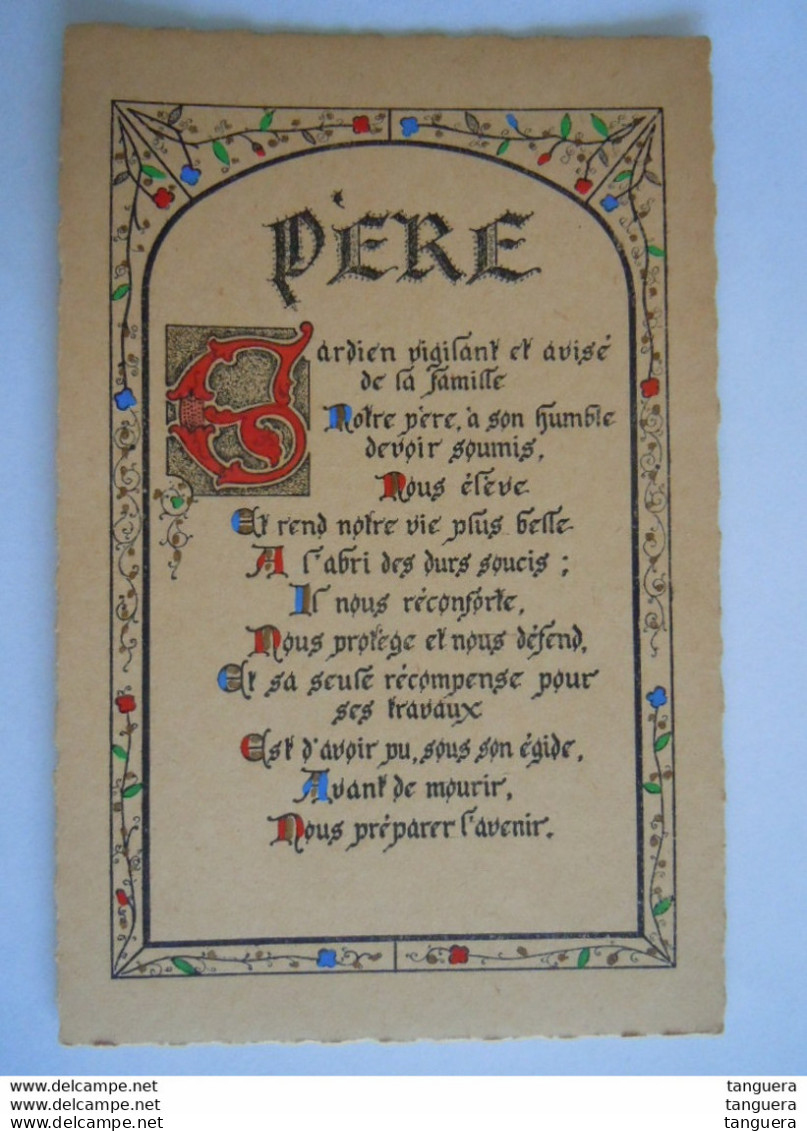 PÈRE
Gardien vigilant et avisé
de la famille
Notre père, à son humble
devoir soumis,
Nous élève
Et rend notre vie plus belle
A l'abri des durs soucis ;
Il nous réconforte,
Nous protège et nous défend,
Et sa seule récompense pour
ses travaux
Est d'avoir pu, sous son égide,
Avant de mourir,
Nous préparer l'avenir.
www.delcampe.net tanguera
www.delcampe.net tanguera
www.delcampe.net tanguera